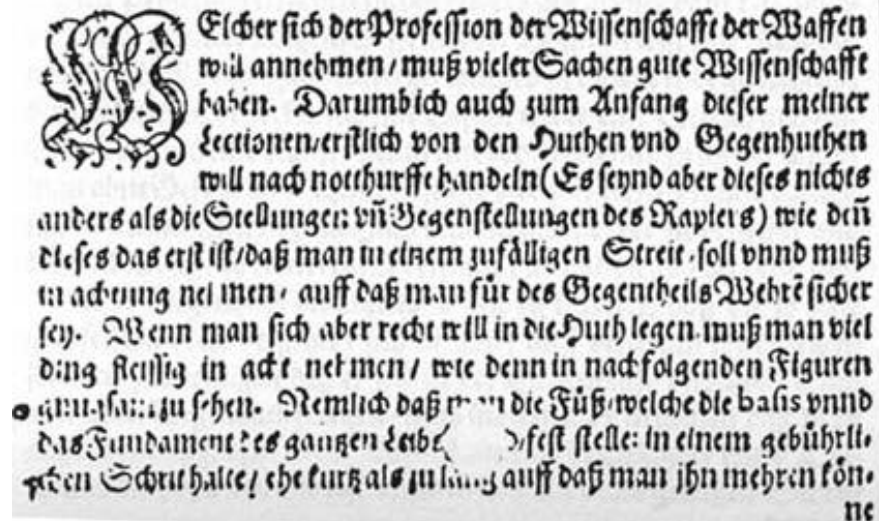 WElcher sich der Profession der Wissenschafft der Waffen
will annehmen / muß vieler Sachen gute Wissenschafft
haben. Darumb ich auch zum Anfang dieser meiner
Lectionen / erstlich von den Huthen vnd Gegenhuthen
will nach notthurfft handeln (Es seynd aber dieses nichts
anders als die Stellungen vñ Gegenstellungen des Rapiers) wie deñ
dieses das erst ist / daß man in einem zufälligen Streit / soll vnnd muß
in achtung nehmen / auff daß man für des Gegentheils Wehrẽ sicher
sey. Wenn man sich aber recht will in die Huth legen / muß man viel
ding fleissig in acht nehmen / wie denn in nachfolgenden Figuren
gnugsam zu sehen. Nemlich daß man die Füß / welche die basis vnnd
das Fundament des gantzen fest stelle: in einem gebührli-
chen Schrit halte / ehe kurtz als zu lang auff daß man jhn mehren kön-
ne